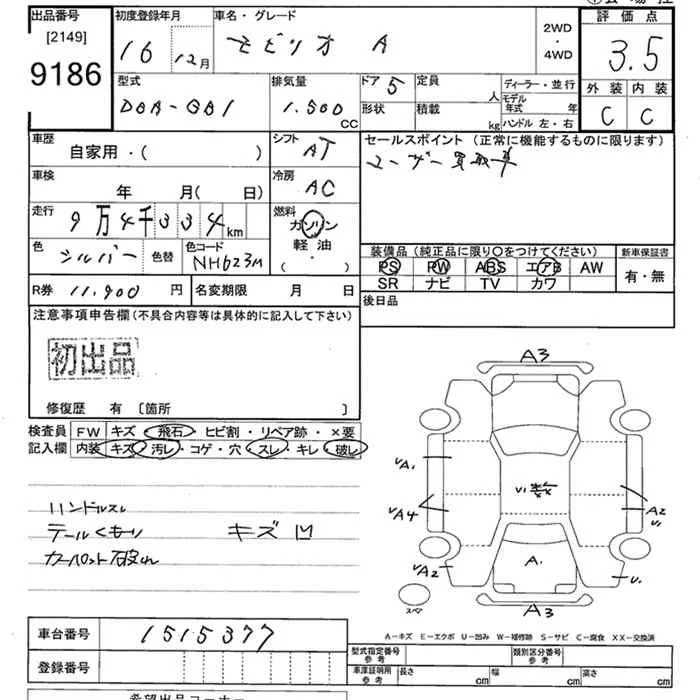 出品番号 初度登録年月 車名・グレード 評価点
[2149]
9186
16 12月 モビリオ A 2WD・4WD 3.5
型式 排気量 ドア 5 定員 人 ディーラー・並行 外装 内装
DBA-GB1 1.500 CC 形状 積載 kg モデル年式 年 C C
ハンドル 左・右
車歴 シフト セールスポイント (正常に機能するものに限ります)
自家用・( ) AT ユーザー買取車
車検 冷房
年 月( 日) AC
走行 9万4千334km 燃料
ガソリン
軽油
( ・ )
色 シルバー 色替 色コード NH623M
装備品 (純正品に限り○をつけてください) 新車保証書
PS PW ABS エアB AW 有・無
SR ナビ TV カワ
R券 11,900 円 名変期限 月 日 後日品
注意事項申告欄(不具合内容等は具体的に記入して下さい)
初出品
修復歴 有 〔箇所 〕
検査員 FW キズ・飛石・ヒビ割・リペア跡・×要
記入欄 内装 キズ・汚レ・コゲ・穴・スレ・キレ・破レ
ハンドルスレ
テールくもり キズ 凹
A3
A1
A4
U1
A2
U1
A1
A2
U1
スペア
A3
A-キズ E-エクボ U-凹み W-補修跡 S-サビ C-腐食 XX-交換済
車台番号 1515377
登録番号
型式指定番号 参考 類別区分番号 参考
車庫証明用 参考 長さ cm 幅 cm 高さ cm
希望出品コーナー